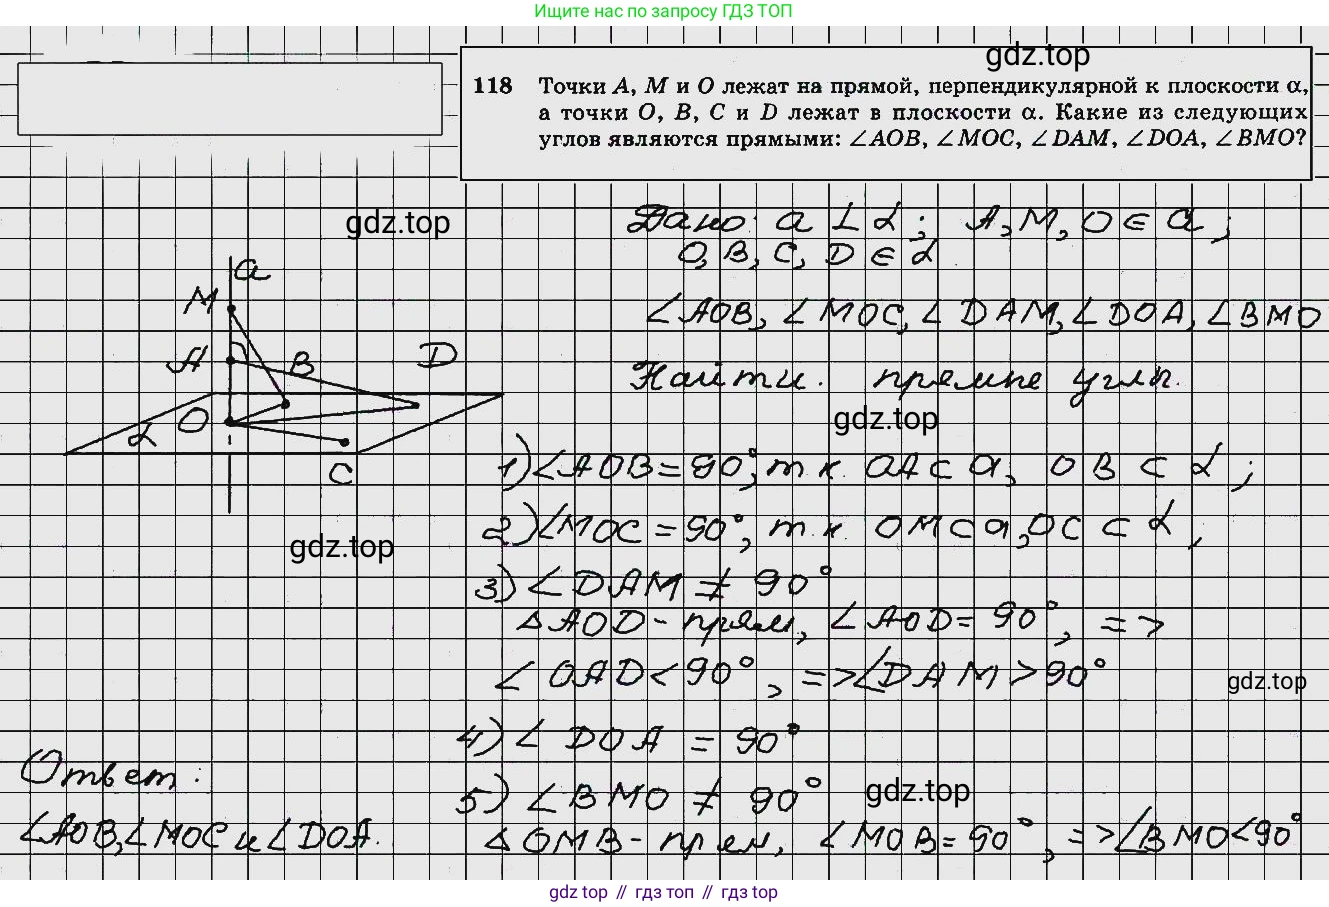 Ищите нас по запросу ГДЗ ТОП
gdz.top
118 Точки A, M и O лежат на прямой, перпендикулярной к плоскости α,
а точки O, B, C и D лежат в плоскости α. Какие из следующих
углов являются прямыми: ∠AOB, ∠MOC, ∠DAM, ∠DOA, ∠BMO?
gdz.top
Дано: a ⊥ α; A, M, O ∈ a;
O, B, C, D ∈ α
∠AOB, ∠MOC, ∠DAM, ∠DOA, ∠BMO
Найти: прямые углы.
gdz.top
a
M
A
B
D
O
α
C
1) ∠AOB = 90°, т.к. OA ⊂ a, OB ⊂ α;
2) ∠MOC = 90°, т.к. OM ⊂ a, OC ⊂ α,
gdz.top
3) ∠DAM ≠ 90°
△AOD - прям, ∠AOD = 90°, =>
∠OAD < 90°, => ∠DAM > 90°
gdz.top
4) ∠DOA = 90°
5) ∠BMO ≠ 90°
gdz.top
△OMB - прям, ∠MOB = 90°, => ∠BMO < 90°
Ответ:
∠AOB, ∠MOC и ∠DOA.
gdz top // гдз топ // gdz top